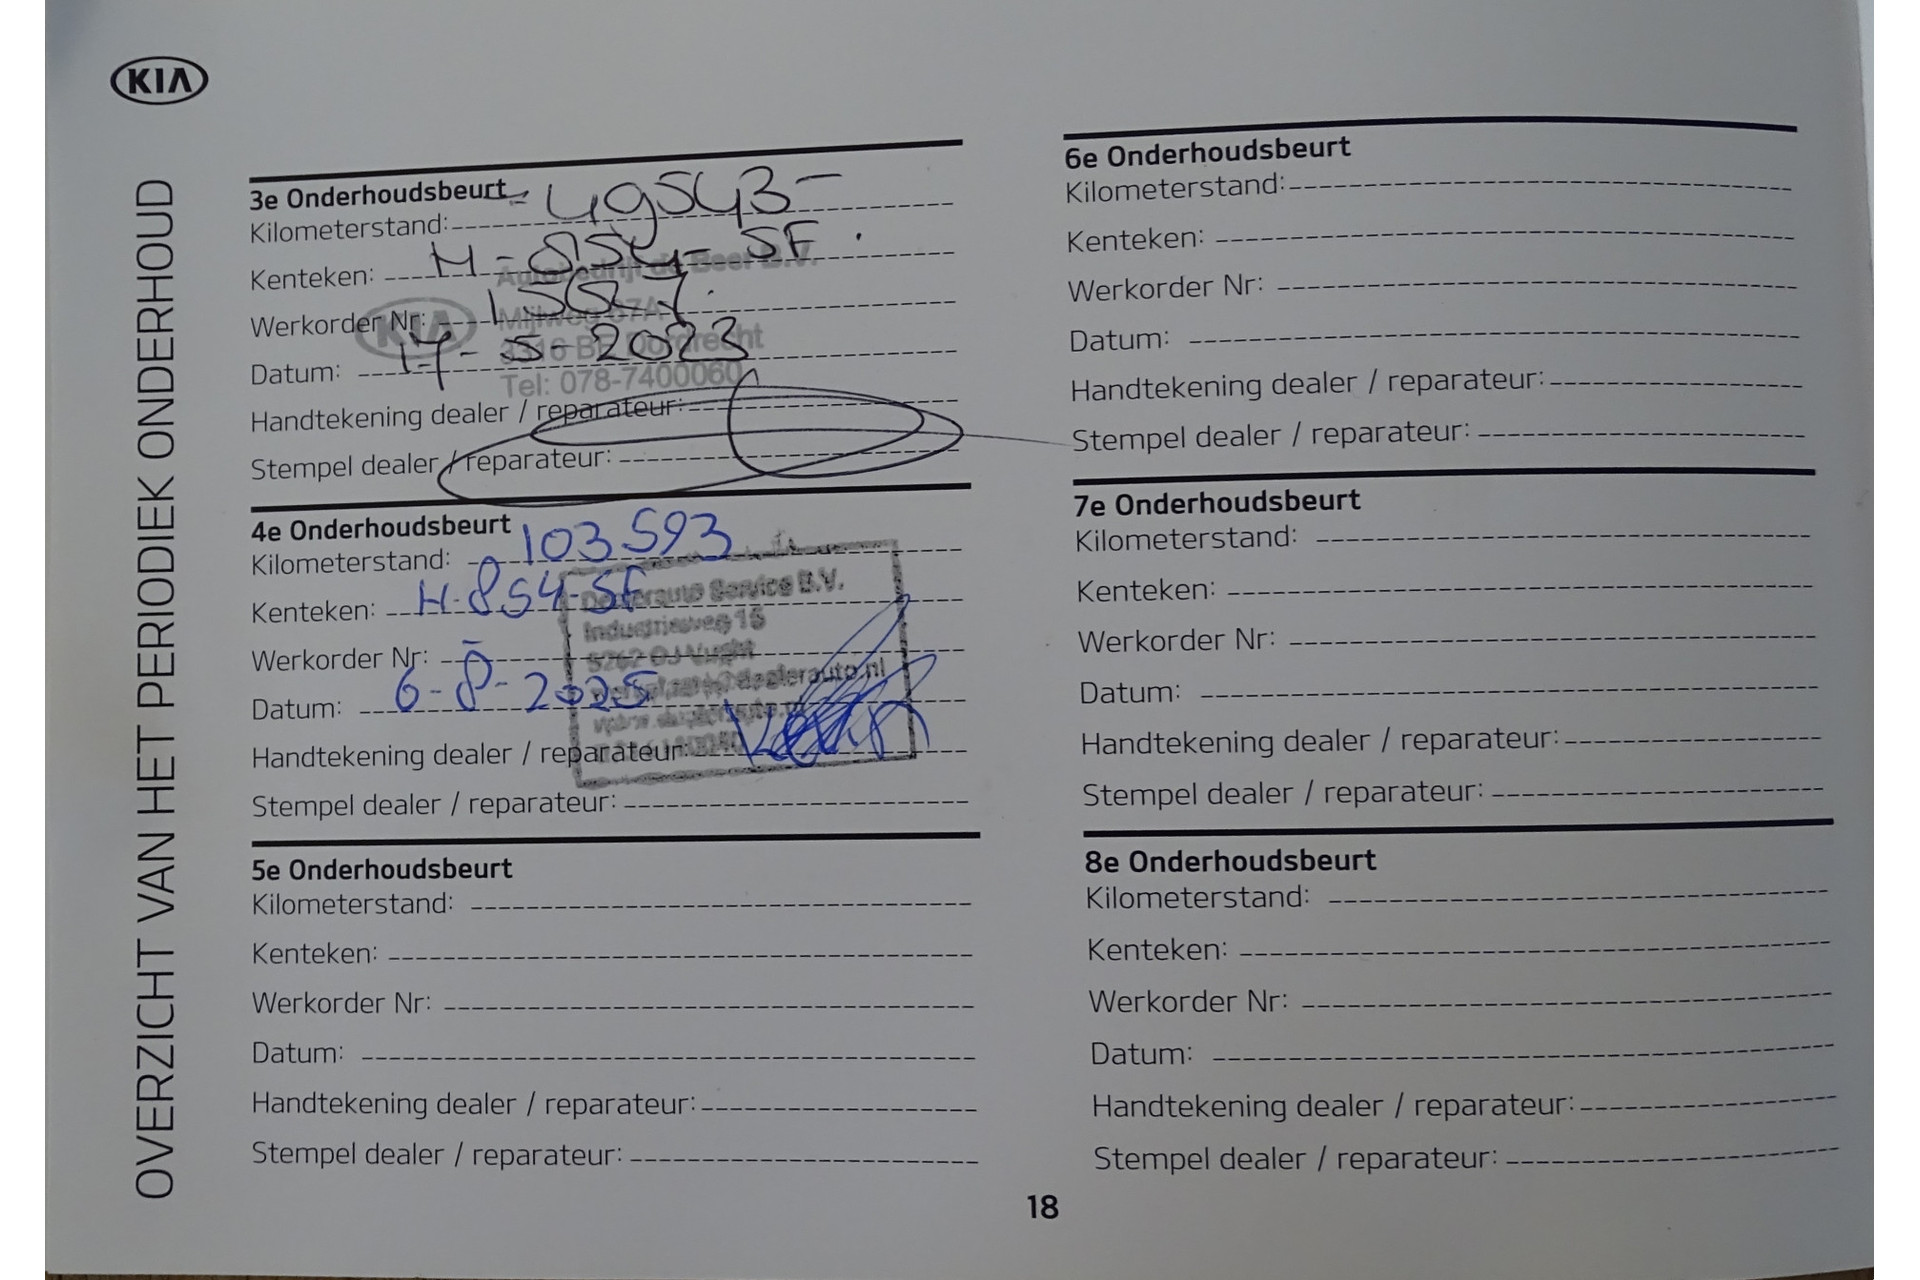 KIA
OVERZICHT VAN HET PERIODIEK ONDERHOUD
3e Onderhoudsbeurt
Kilometerstand: 49543-
Kenteken: H-854-SF.
Autobedrijf de Beer B.V.
Werkorder Nr:
KIA
Mijlweg 87A
Datum: 17-5-2023
3316 BE Dordrecht
Tel: 078-7400060
Handtekening dealer / reparateur:
Stempel dealer / reparateur:
4e Onderhoudsbeurt
Kilometerstand: 103593
Kenteken: H-854-SF
Dealerauto Service B.V.
Industrieweg 15
Werkorder Nr: -
5262 GJ Vught
werkplaats@dealerauto.nl
Datum: 6-8-2025
www.dealerauto.nl
Handtekening dealer / reparateur:
Stempel dealer / reparateur:
5e Onderhoudsbeurt
Kilometerstand:
Kenteken:
Werkorder Nr:
Datum:
Handtekening dealer / reparateur:
Stempel dealer / reparateur:
6e Onderhoudsbeurt
Kilometerstand:
Kenteken:
Werkorder Nr:
Datum:
Handtekening dealer / reparateur:
Stempel dealer / reparateur:
7e Onderhoudsbeurt
Kilometerstand:
Kenteken:
Werkorder Nr:
Datum:
Handtekening dealer / reparateur:
Stempel dealer / reparateur:
8e Onderhoudsbeurt
Kilometerstand:
Kenteken:
Werkorder Nr:
Datum:
Handtekening dealer / reparateur:
Stempel dealer / reparateur:
18